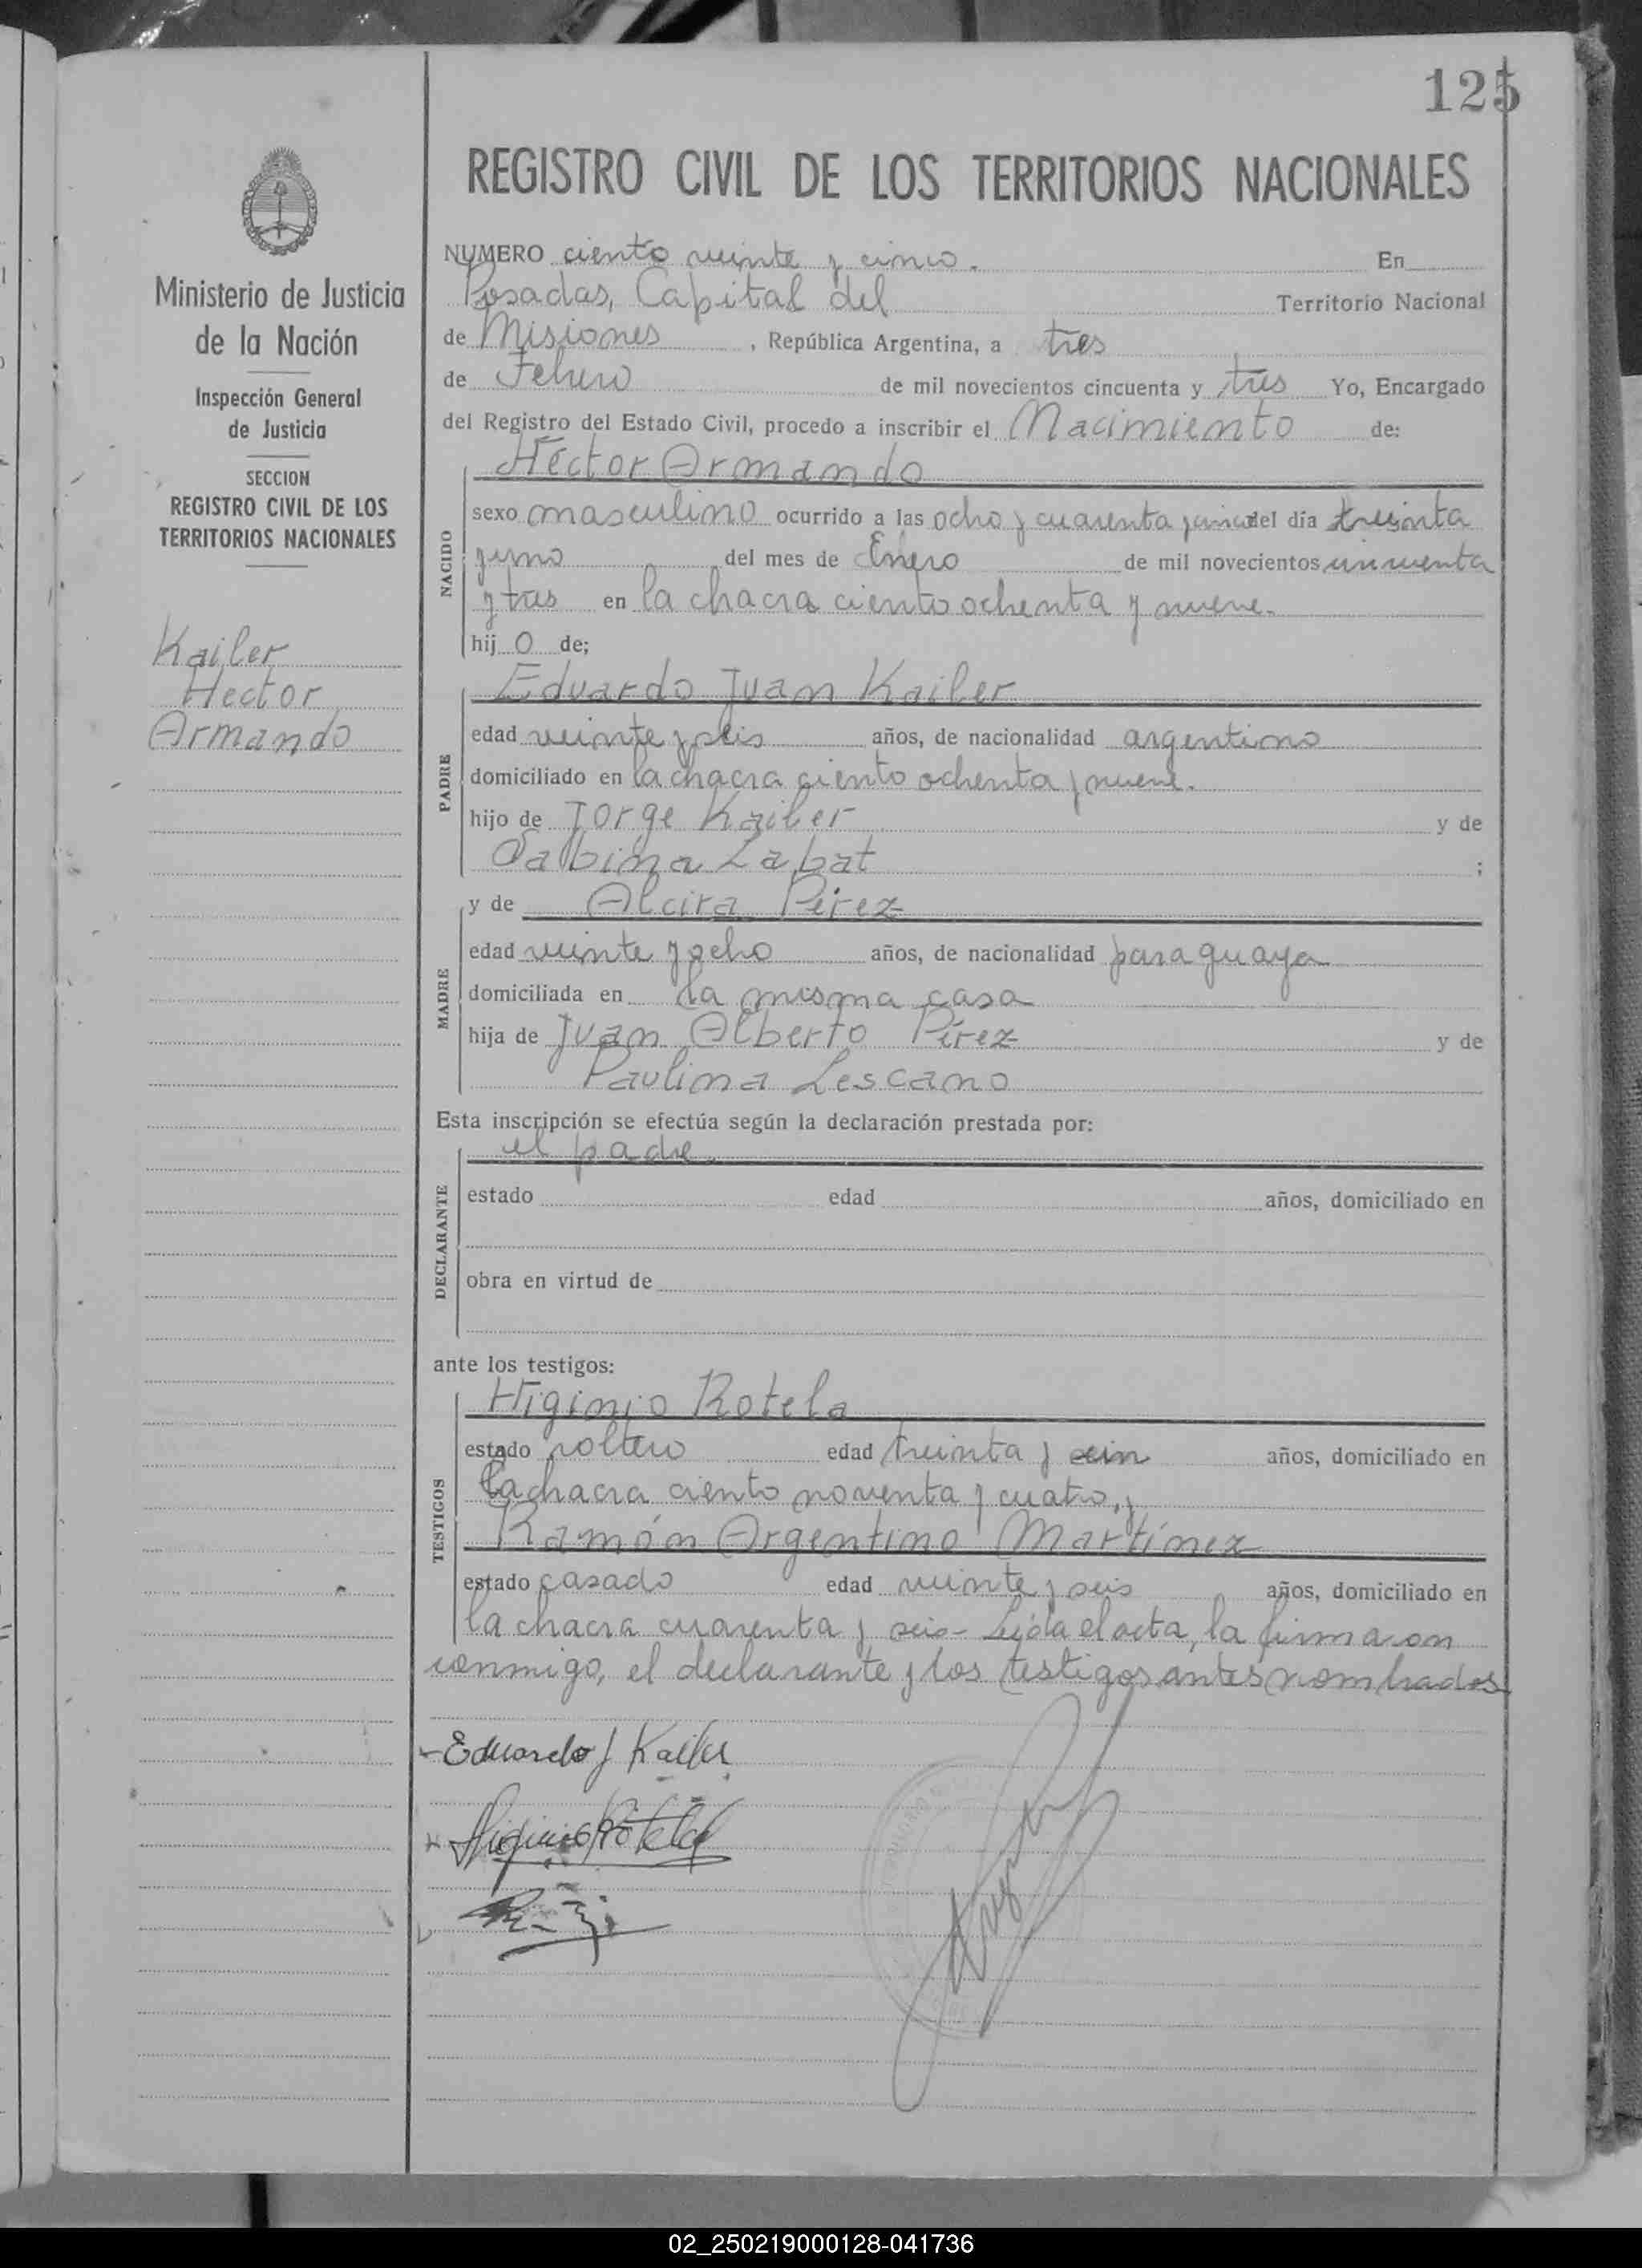 125
REGISTRO CIVIL DE LOS TERRITORIOS NACIONALES
Ministerio de Justicia
de la Nación
Inspección General
de Justicia
SECCION
REGISTRO CIVIL DE LOS
TERRITORIOS NACIONALES
Kailer
Hector
Armando
NUMERO ciento veinte y cinco. En
Posadas, Capital del Territorio Nacional
de Misiones, República Argentina, a tres
de Febrero de mil novecientos cincuenta y tres Yo, Encargado
del Registro del Estado Civil, procedo a inscribir el Nacimiento de:
NACIDO
Héctor Armando
sexo masculino ocurrido a las ocho y cuarenta y cinco del día treinta
y uno del mes de Enero de mil novecientos cincuenta
y tres en la chacra ciento ochenta y nueve.
hij o de;
PADRE
Eduardo Juan Kailer
edad veinte y seis años, de nacionalidad argentino
domiciliado en la chacra ciento ochenta y nueve.
hijo de Jorge Kailer y de
Sabina Labat ;
MADRE
y de Alcira Pérez
edad veinte y ocho años, de nacionalidad paraguaya
domiciliada en la misma casa
hija de Juan Alberto Pérez y de
Paulina Lescano
Esta inscripción se efectúa según la declaración prestada por:
DECLARANTE
el padre.
estado edad años, domiciliado en
obra en virtud de
ante los testigos:
TESTIGOS
Higinio Rotela
estado soltero edad treinta y años, domiciliado en
la chacra ciento noventa y cuatro, y
Ramón Argentino Martínez
estado casado edad veinte y seis años, domiciliado en
la chacra cuarenta y seis- Leida el acta, la firmaron
conmigo, el declarante y los testigos antes nombrados
Eduardo J Kailer
Higinio Rotela
02_250219000128-041736